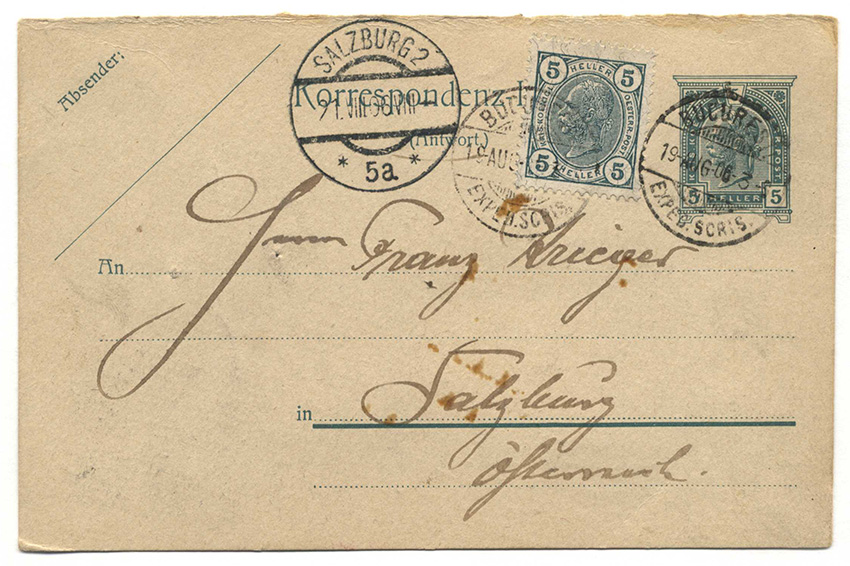 Absender:
Korrespondenz
(Antwort.)
SALZBURG 2
21.VIII 06 VIII
* 5a *
5 HELLER 5
KAIS.KOENIGL. OESTERR.POST
5 HELLER 5
BUCU
19 AUG
EXPED.SCRIS.
BUCUR
19 AUG 06
EXPED.SCRIS.
POST
5 HELLER 5
An Herrn Franz Krieger
in Salzburg
Österreich.